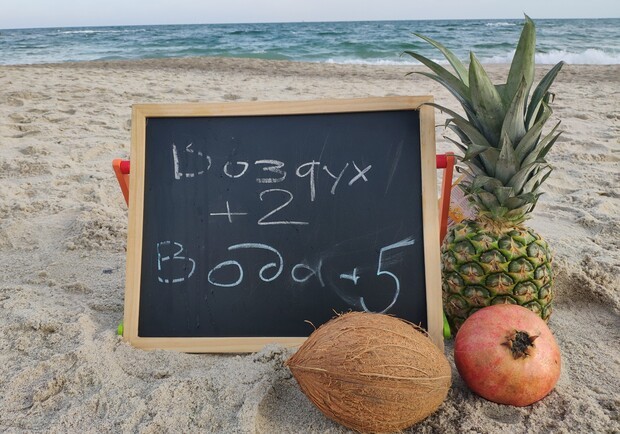 Воздух
+2
Вода +5